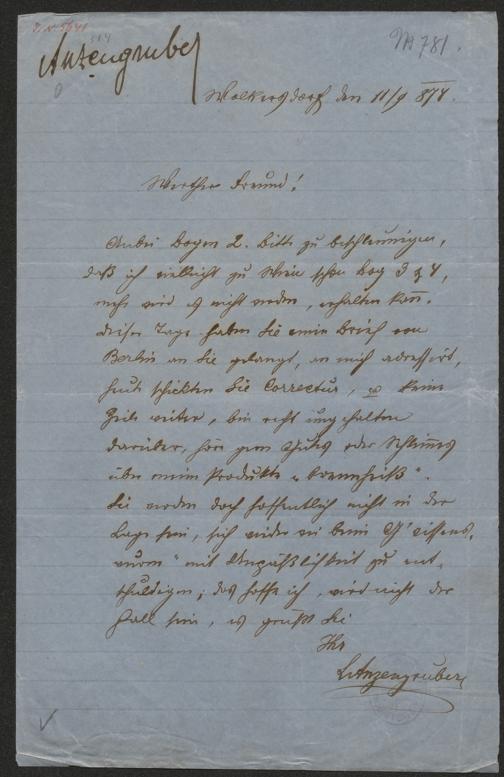 Anzengruber
M 781.
Wolkersdorf den 11/9 874.
Werther Freund!
Anbei Bogen 2. bitte zu beschleunigen,
daß ich vielleicht zu Wien schon Bog 3 & 4,
mehr wird es nicht werden, erhalten kann.
Dieser Tage haben Sie einen Brief von
Berlin an Sie gelangt, an mich adressirt,
heute schickten Sie Correctur, & keine
Zeile weiter, bin recht ungehalten
darüber, höre gern Gutes oder Schlimmes
über meine Produkte
Sie werden doch hoffentlich nicht in der
Lage sein, sich wieder wie beim „G'wissens-
wurm" mit Unpäßlichkeit zu ent-
schuldigen; das hoffe ich, wird nicht der
Fall sein, es grüßt Sie
Ihr
LAnzengruber